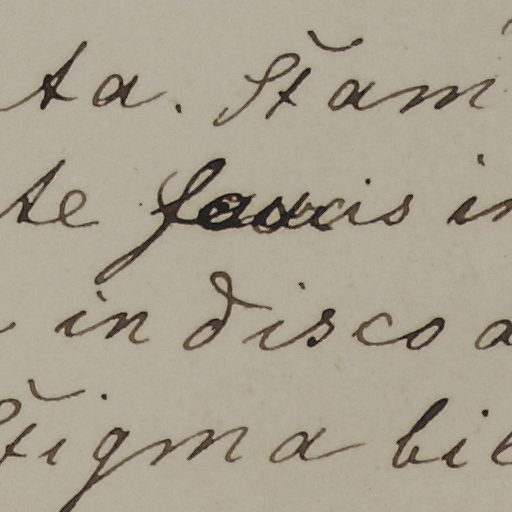 ta. Stam
te faucis in
in disco a
Stigma bil